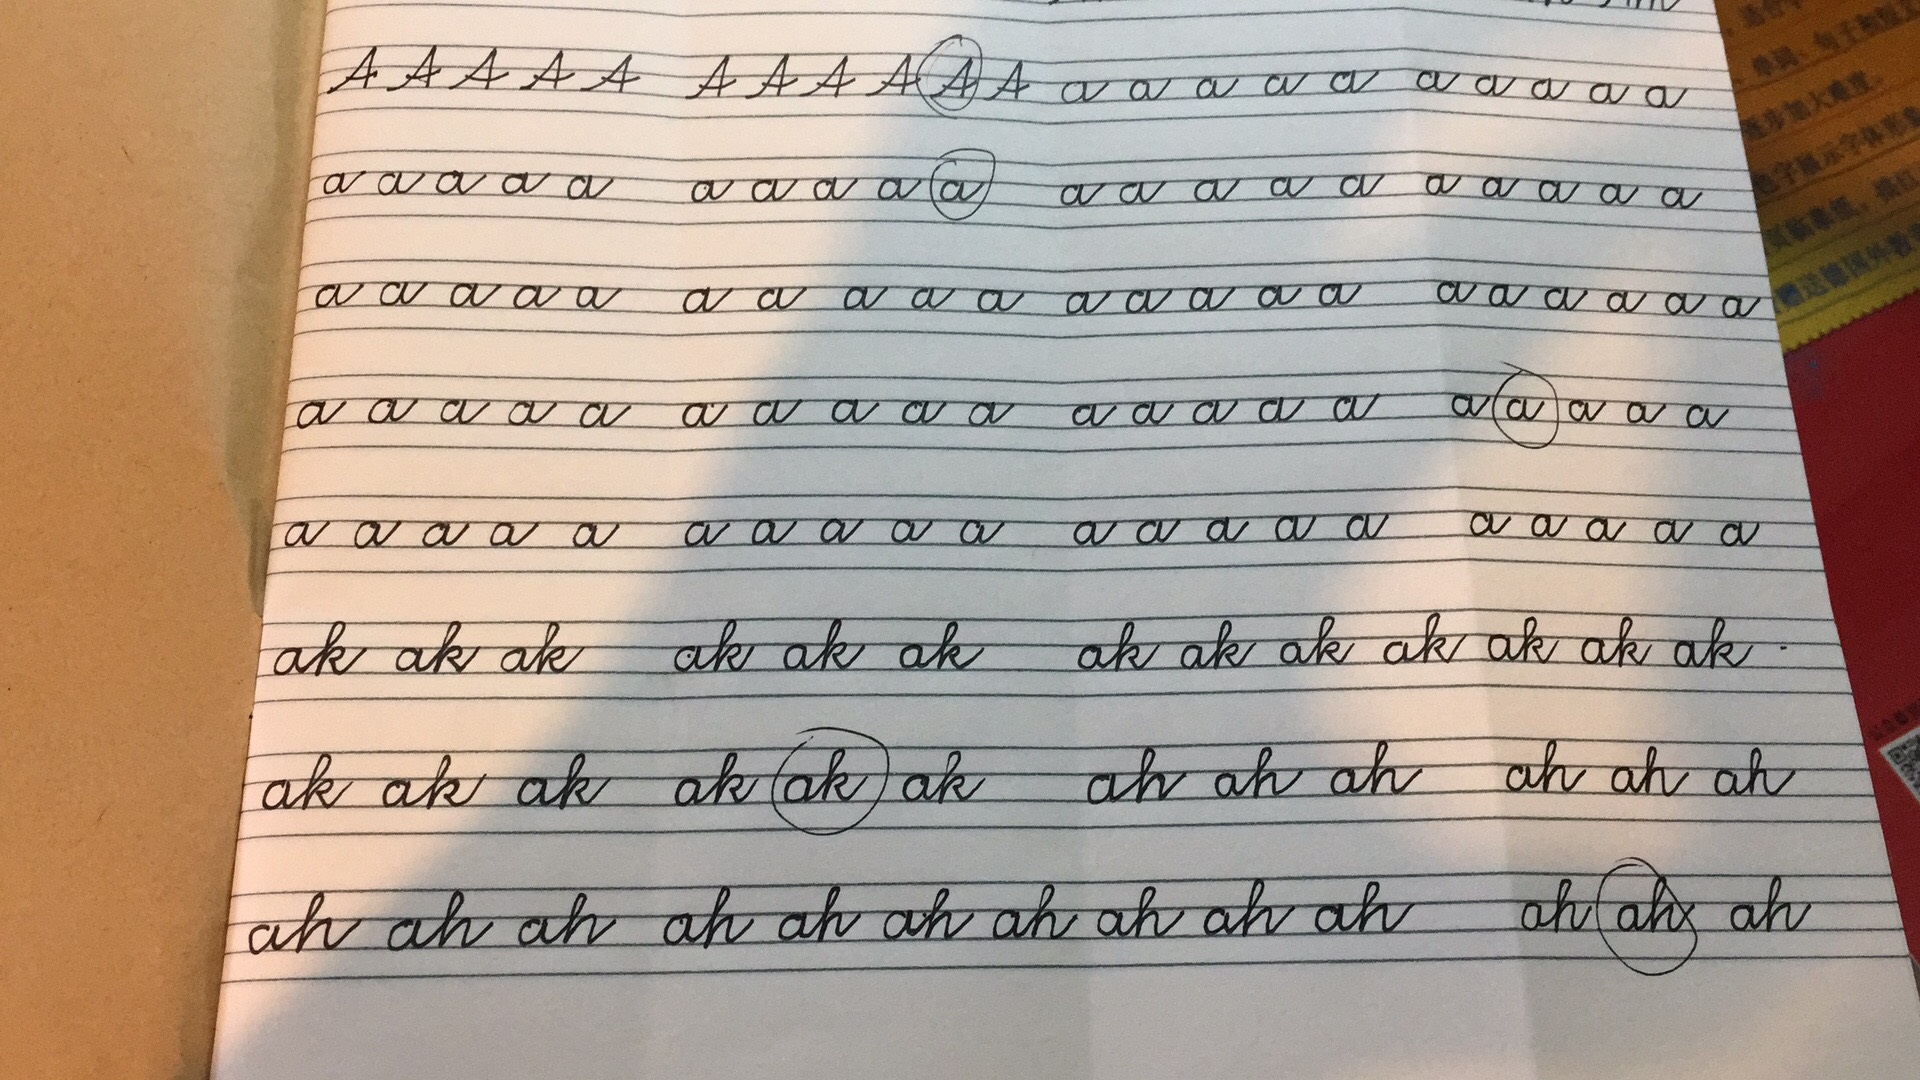 A A A A A A A A A A A a a a a a a a a a a
a a a a a a a a a a a a a a a a a a a a
a a a a a a a a a a a a a a a a a a a a a
a a a a a a a a a a a a a a a a a a a a
a a a a a a a a a a a a a a a a a a a a
ak ak ak ak ak ak ak ak ak ak ak ak ak .
ak ak ak ak ak ak ah ah ah ah ah ah
ah ah ah ah ah ah ah ah ah ah ah ah ah
步加大难度